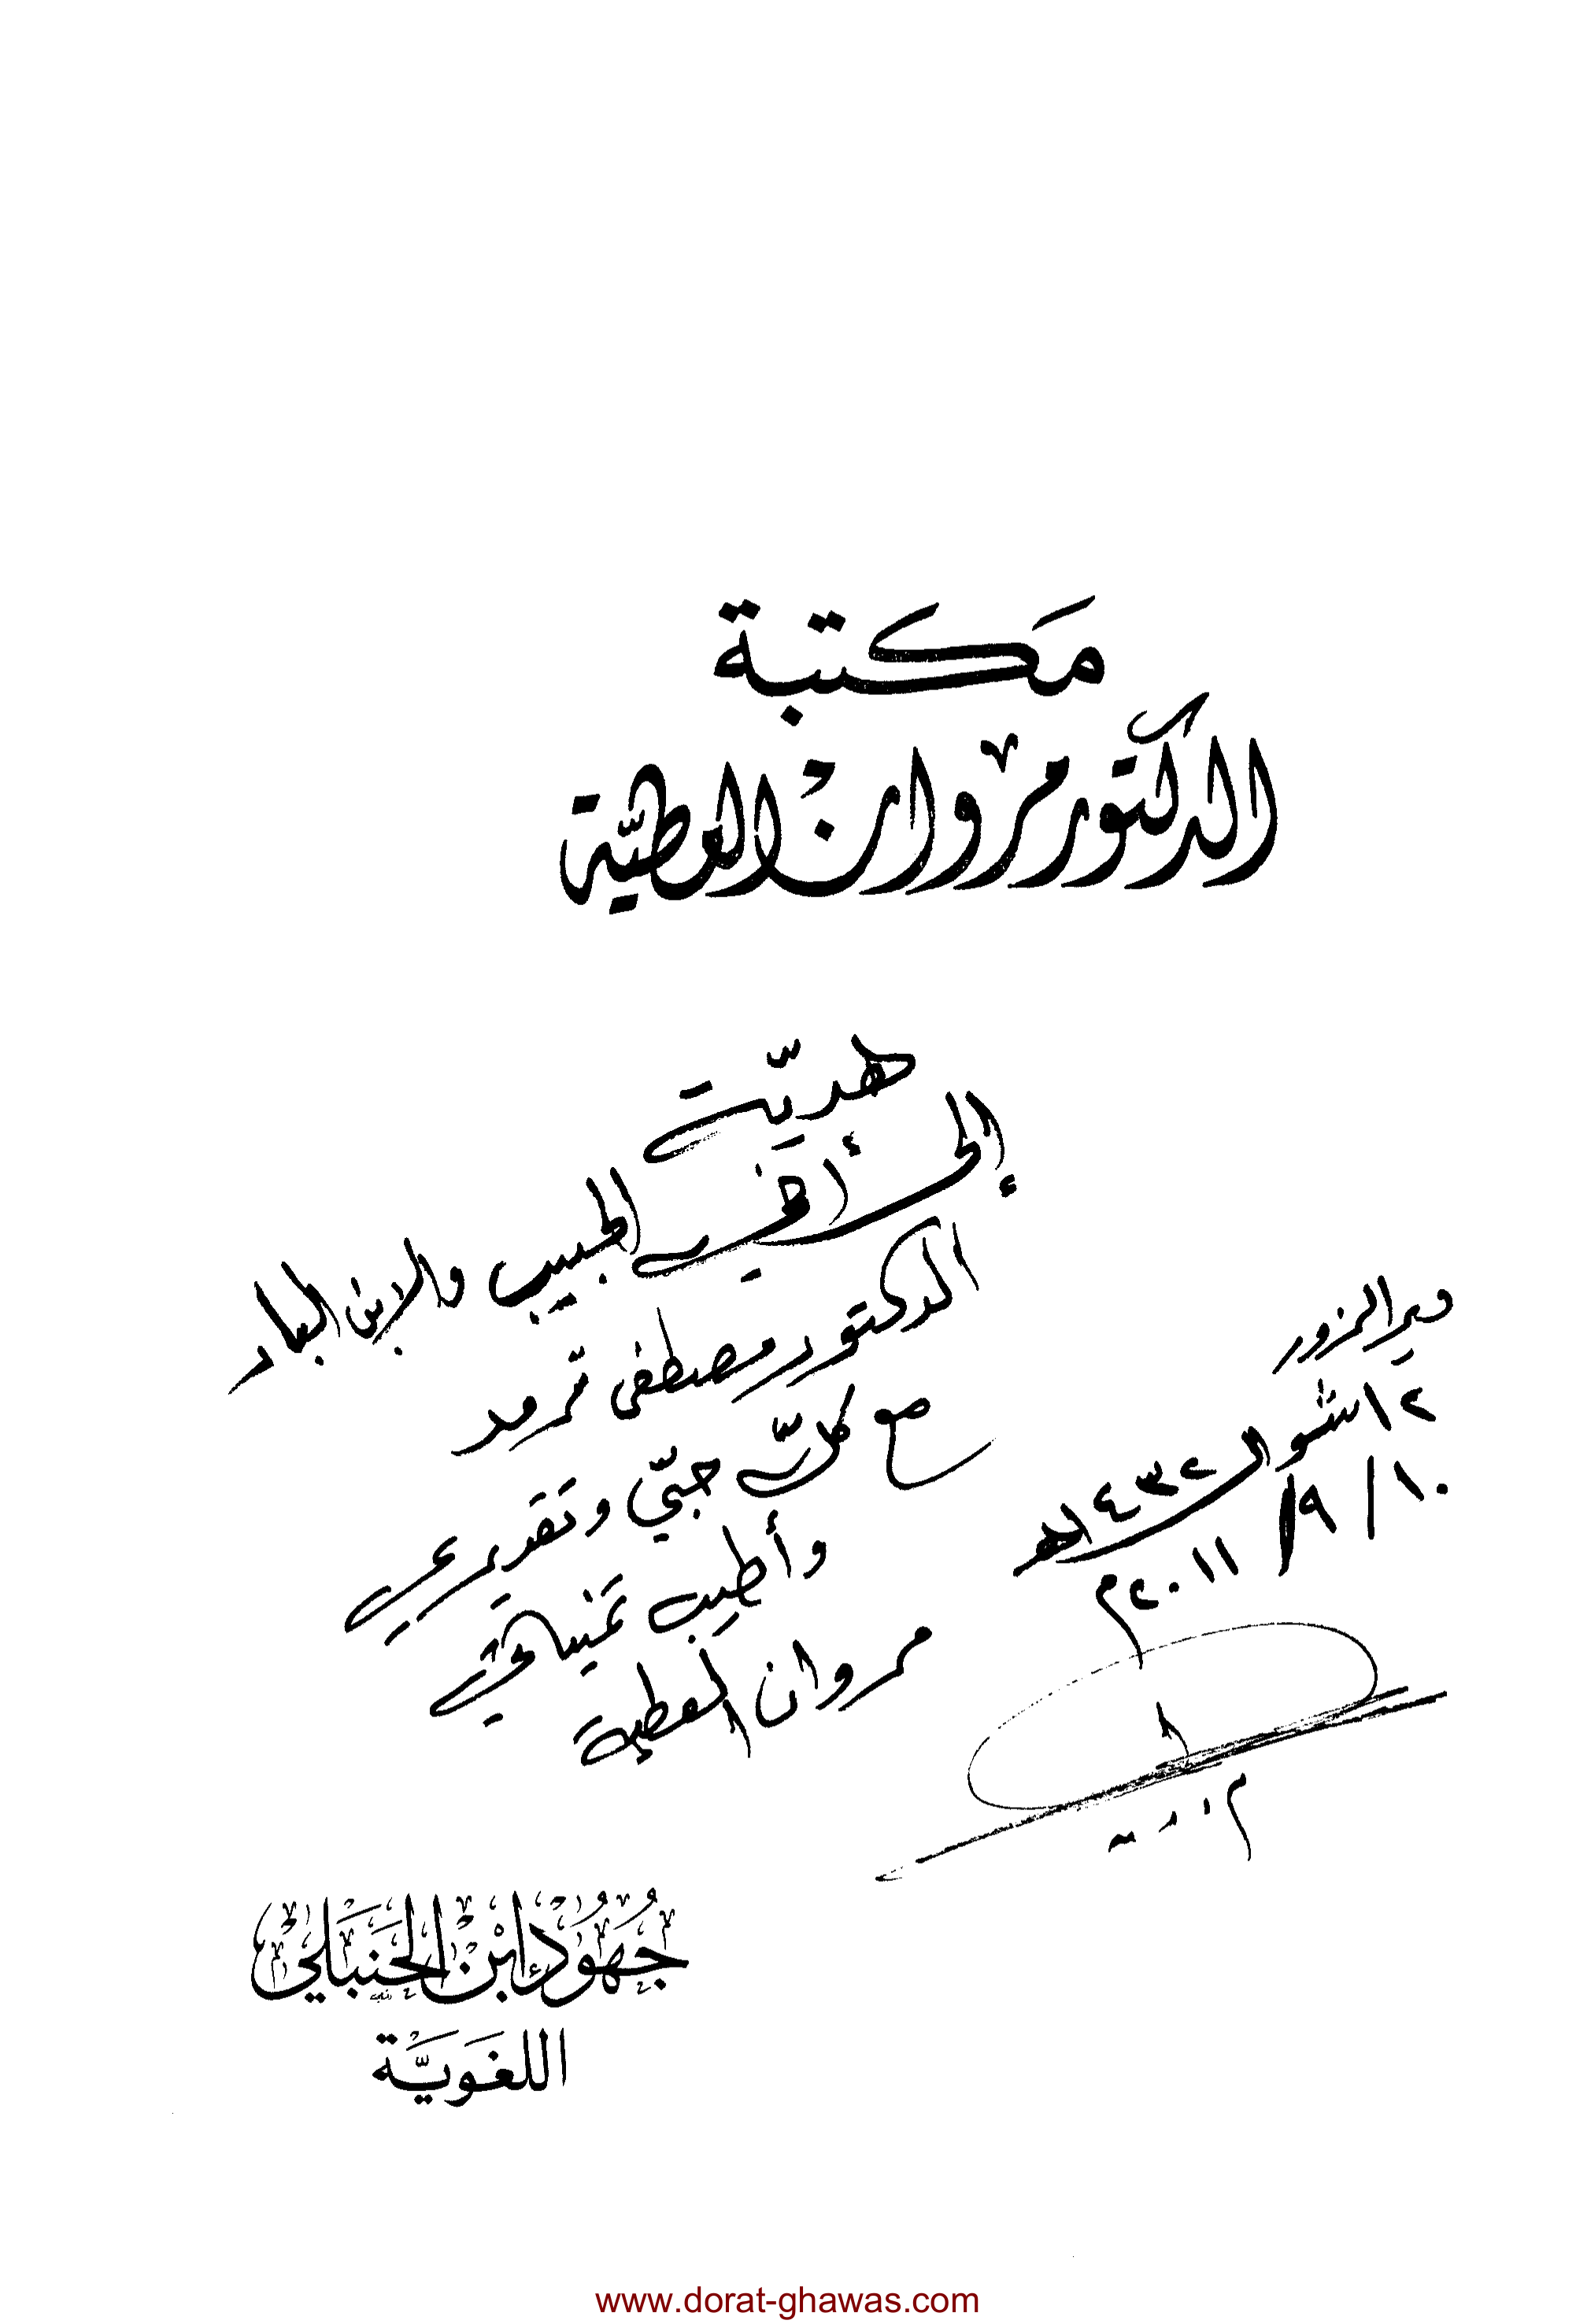 مَكتبة
الدكتور مروان العطيّة
هديّة
إلى أخي الحبيب والابن البار
الدكتور مصطفى قرمد
مع كلّ حبّي وتقديري
وأطيب تمنياتي
مروان العطية
دير الزور
١٢ شوال ١٤٣٢هـ
١٠/٩/٢٠١١م
جُهُودُ ابْنِ الحَنبَلي
اللغَويَّة
www.dorat-ghawas.com